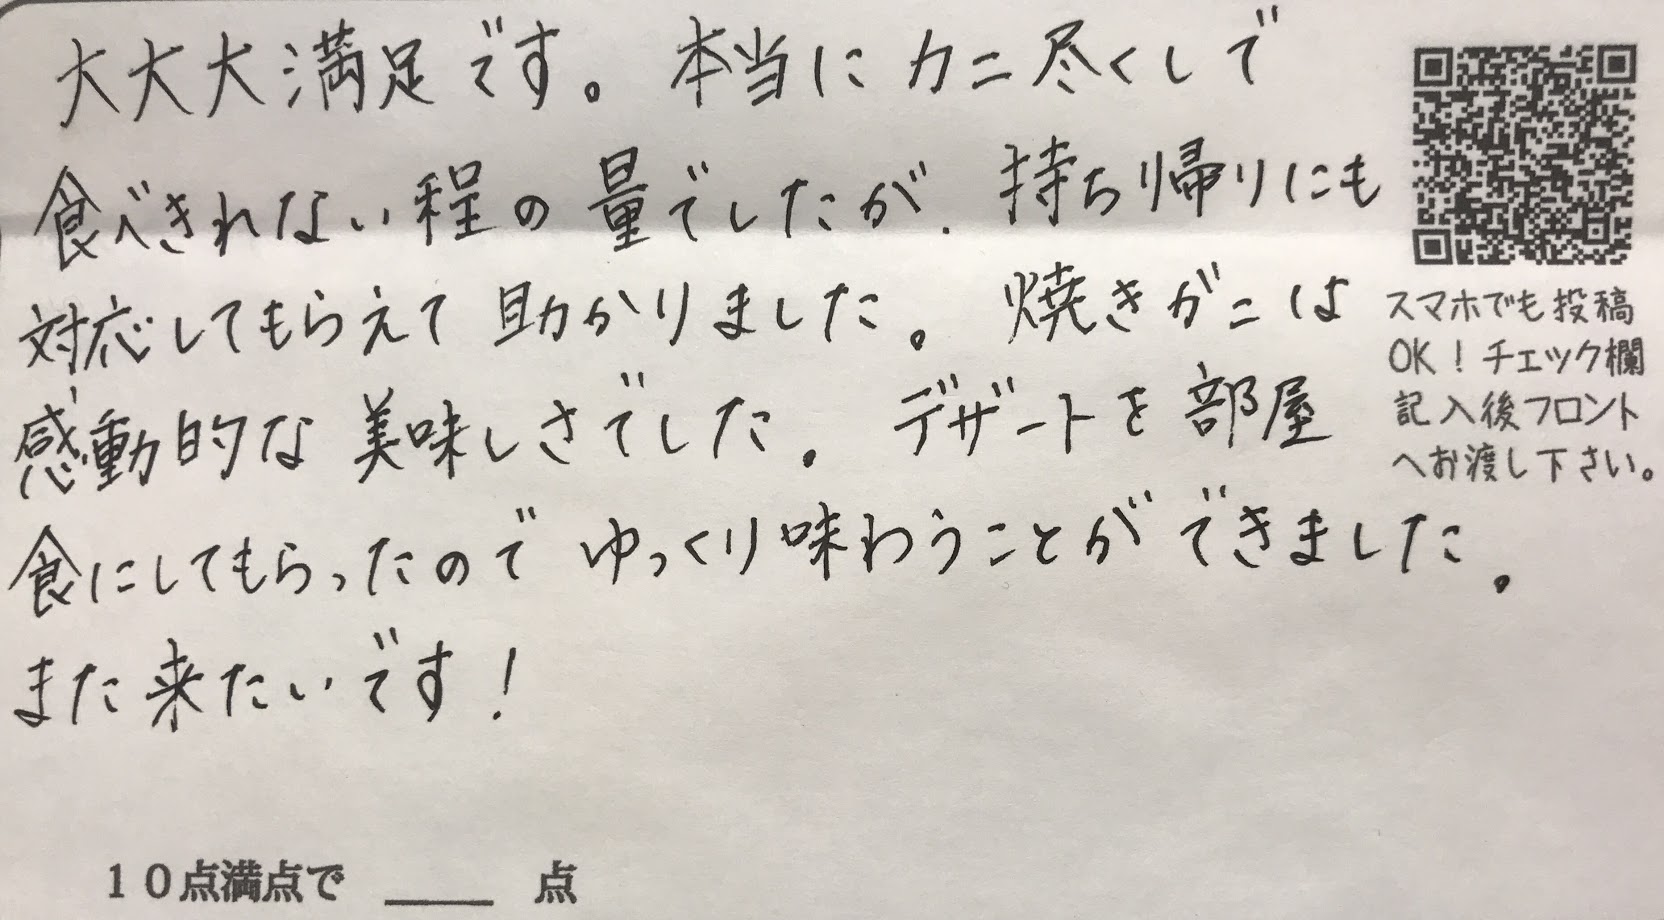 大大大満足です。本当にカニ尽くしで
食べきれない程の量でしたが、持ち帰りにも
対応してもらえて助かりました。焼きがには
感動的な美味しさでした。デザートを部屋
食にしてもらったのでゆっくり味わうことができました。
また来たいです!
スマホでも投稿
OK!チェック欄
記入後フロント
へお渡し下さい。
10点満点で ____ 点